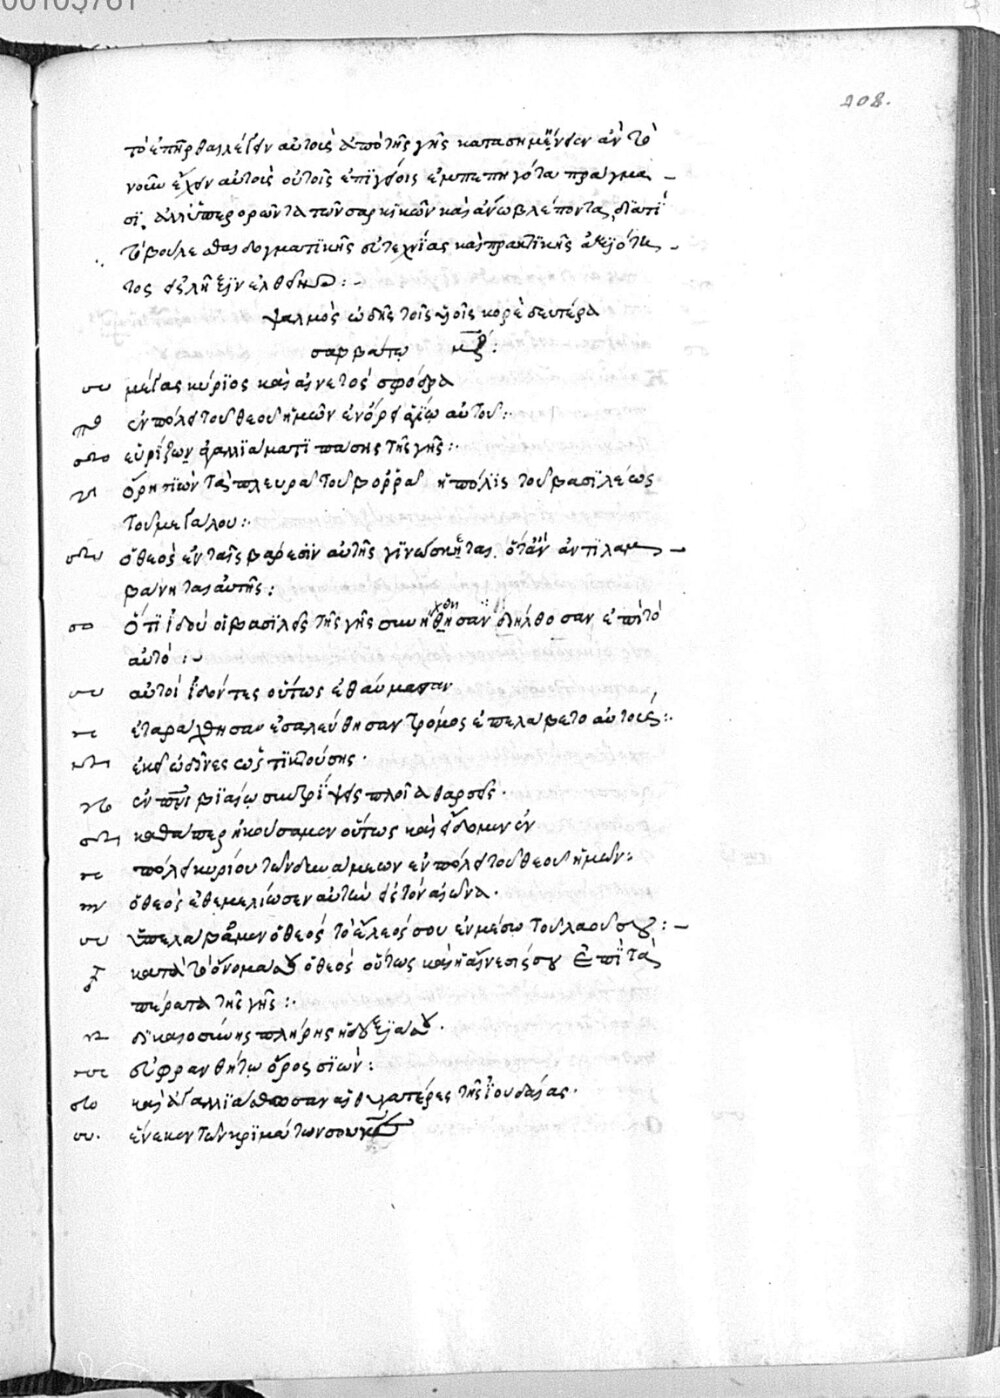 00105761
208.
τὸ ἐπήρθαι λέγειν αὐτοὺς ἀπὸ τῆς γῆς κατασημαίνειν ἂν τὸ
νοῦν ἔχειν αὐτοὺς οὐ τοῖς ἐπιγείοις ἐμπεπηγότα πράγμα-
σι, ἀλλ' ὑπερορῶντα τῶν σαρκικῶν καὶ ἄνω βλέποντα, διατί
βούλεσθαι δογματικῆς εὐτεχνίας καὶ πρακτικῆς
τος
ψαλμὸς ὠδῆς τοῖς υἱοῖς κορὲ δευτέρα
σαββάτῳ μζ:
μέγας κύριος καὶ αἰνετὸς σφόδρα
ἐν πόλει τοῦ θεοῦ ἡμῶν ἐν ὄρει ἁγίῳ αὐτοῦ:
εὐρίζων ἀγαλλιάματι πάσης τῆς γῆς:
ὄρη σιὼν τὰ πλευρὰ τοῦ βορρᾶ ἡ πόλις τοῦ βασιλέως
τοῦ μεγάλου:
ὁ θεὸς ἐν ταῖς βάρεσιν αὐτῆς γινώσκεται ὅταν ἀντιλαμ-
βάνηται αὐτῆς:
Ὅτι ἰδοὺ οἱ βασιλεῖς τῆς γῆς συνήχθησαν διήλθοσαν ἐπὶ τὸ
αὐτό:
αὐτοὶ ἰδόντες οὕτως ἐθαύμασαν
ἐταράχθησαν ἐσαλεύθησαν τρόμος ἐπελάβετο αὐτούς:
ἐκεῖ ὠδῖνες ὡς τικτούσης.
ἐν πνι βιαίῳ συντρίψεις πλοῖα θαρσεῖς.
καθάπερ ἠκούσαμεν οὕτως καὶ εἴδομεν ἐν
πόλει κυρίου τῶν δυνάμεων ἐν πόλει τοῦ θεοῦ ἡμῶν:
ὁ θεὸς ἐθεμελίωσεν αὐτὴν εἰς τὸν αἰῶνα.
ὑπελάβομεν ὁ θεὸς τὸ ἔλεός σου ἐν μέσῳ τοῦ λαοῦ σου:
κατὰ τὸ ὄνομά σου ὁ θεὸς οὕτως καὶ ἡ αἴνεσίς σου ἐπὶ τὰ
πέρατα τῆς γῆς:
δικαιοσύνης πλήρης ἡ δεξιά σου.
εὐφρανθήτω ὄρος σιών:
καὶ ἀγαλλιάσθωσαν αἱ θυγατέρες τῆς ἰουδαίας.
ἕνεκεν τῶν κριμάτων σου κε